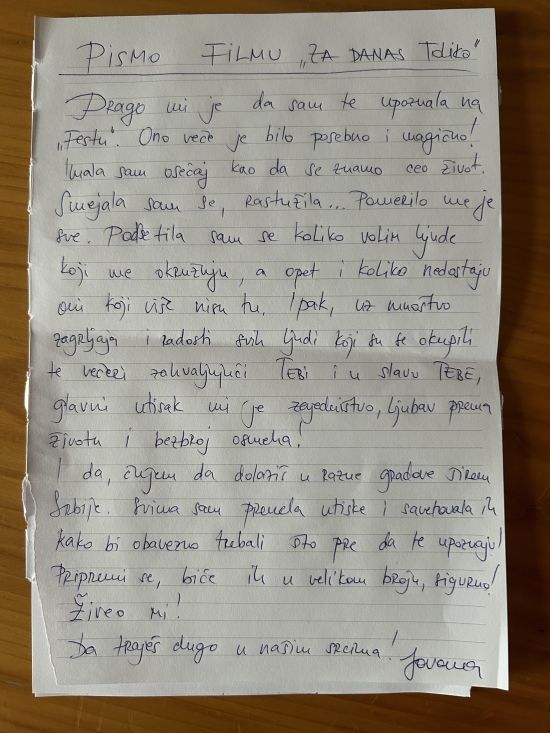 PISMO FILMU „ZA DANAS TOLIKO"
Drago mi je da sam te upoznala na
„Festu". Ono veče je bilo posebno i magično!
Imala sam osećaj kao da se znamo ceo život.
Smejala sam se, rastužila... Pomerilo me je
sve. Podsetila sam se koliko volim ljude
koji me okružuju, a opet i koliko nedostaju
oni koji više nisu tu. Ipak, uz mnoštvo
zagrljaja i radosti svih ljudi koji su se okupili
te večeri zahvaljujući TEBI i u slavu TEBE,
glavni utisak mi je zajedništvo, ljubav prema
životu i bezbroj osmeha!
I da, čujem da dolaziš u razne gradove širom
Srbije. Svima sam prenela utiske i savetovala ih
kako bi obavezno trebali što pre da te upoznaju!
Pripremi se, biće ih u velikom broju, sigurno!
Živeo mi!
Da traješ dugo u našim srcima!
Jovana